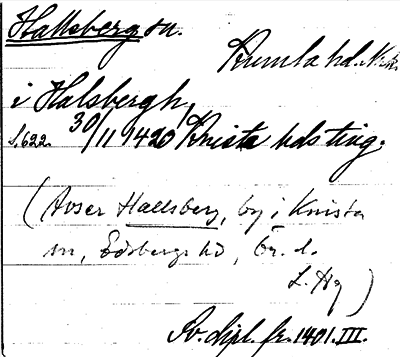 Hallsberg sn.
Kumla hd. Nke.
i Halsbergh,
s. 622. 30/11 1420 Knista hds ting.
(Avser Hallsberg, by i Knista
sn, Edsbergs hd, Ör. l.
L. Hg)
Sv. dipl. fr. 1401. III.